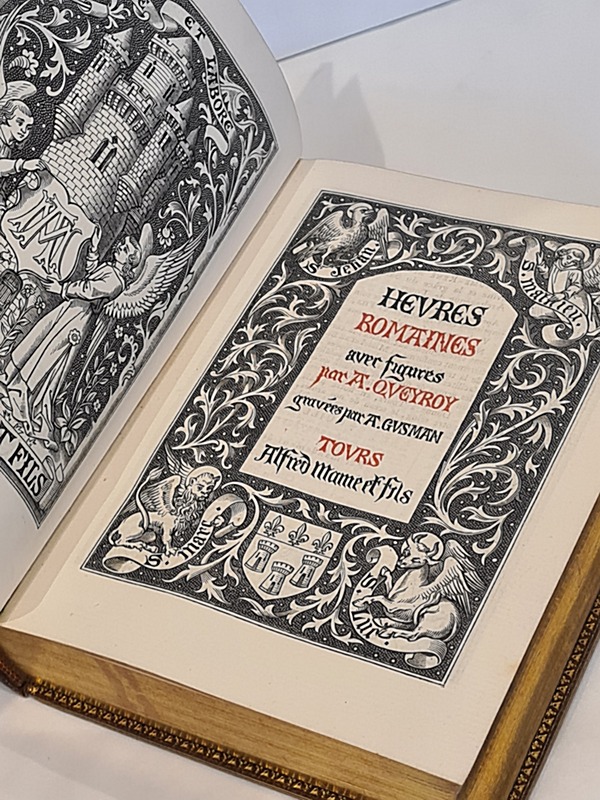 ET LABORE
M
T FILS
S. Jehan.
S. matthieu.
HEVRES
ROMAINES
avec figures
par A. QVEYROY
gravées par A. GVSMAN
TOVRS
Alfred Mame et fils
S. marc
S. Luc.